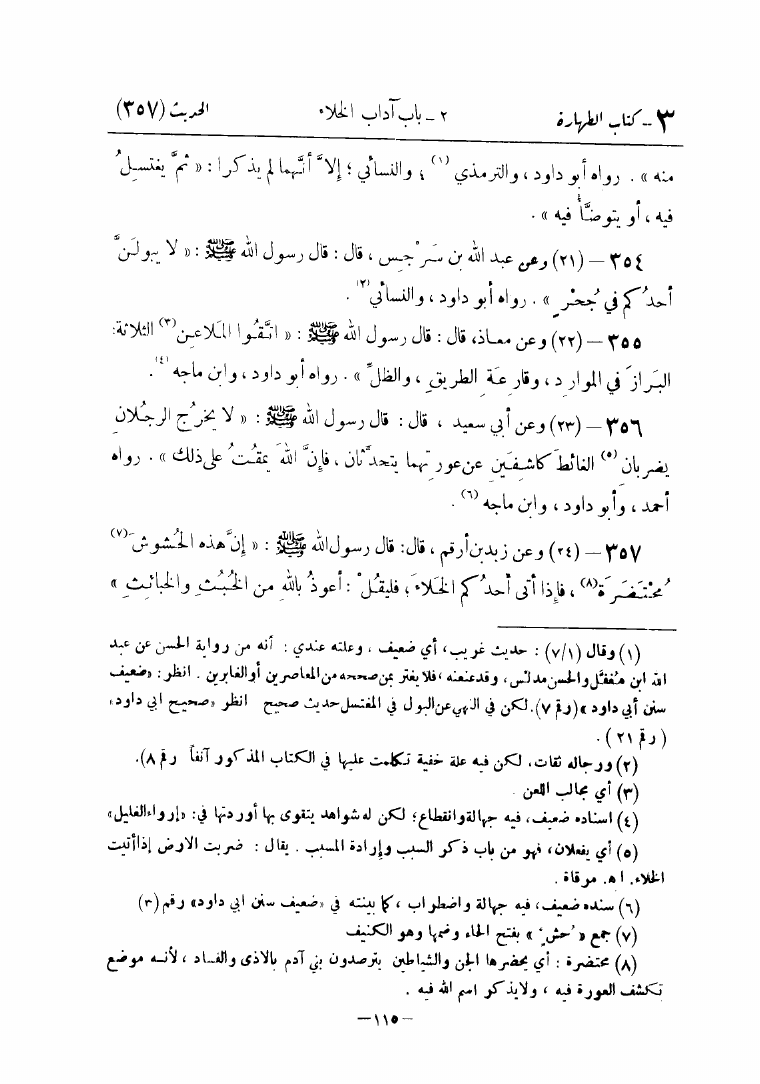 ٣ – كتاب الطهارة ٢ – باب آداب الخلاء الحديث (٣٥٧)
منه » . رواه أبو داود ، والترمذي (١) ؛ والنسائي ؛ إلاَّ أنَّهما لم يذكرا : « ثمَّ يغتسِلُ
فيه ، أو يتوضَّأُ فيه » .
٣٥٤ – (٢١) وعن عبد الله بن سَرْجِس ، قال : قال رسول الله ﷺ : « لا يبولَنَّ
أحدُكم في جُحْرٍ » . رواه أبو داود ، والنسائي(٢) .
٣٥٥ – (٢٢) وعن معاذ، قال : قال رسول الله ﷺ : « اتَّقُوا المَلاعِنَ(٣) الثلاثةَ:
البَرازَ في الموارِدِ ، وقارِعَةِ الطريقِ ، والظلِّ » . رواه أبو داود ، وابن ماجه(٤).
٣٥٦ – (٢٣) وعن أبي سعيد ، قال : قال رسول الله ﷺ : « لا يخرُجِ الرجُلانِ
يضرِبانِ (٥) الغائطَ كاشِفَينِ عن عورتِهما يتحدَّثان ، فإنَّ اللهَ يمقُتُ على ذلك » . رواه
أحمد ، وأبو داود ، وابن ماجه (٦) .
٣٥٧ – (٢٤) وعن زيد بن أرقم ، قال: قال رسول الله ﷺ : « إنَّ هذه الحُشوشَ (٧)
مُحْتَضَرَةٌ(٨) ، فإذا أتى أحدُكم الخَلاءَ ؛ فليقُلْ : أعوذُ باللهِ من الخُبُثِ والخبائِثِ »
(١) وقال (٧/١) : حديث غريب، أي ضعيف ، وعلته عندي : أنه من رواية الحسن عن عبد
الله ابن مُغفَّل والحسن مدلس ، وقد عنعنه ، فلا يغتر بمن صححه من المعاصرين أو الغابرين . انظر : «ضعيف
سنن أبي داود » (رقم ٧). لكن في النهي عن البول في المغتسل حديث صحيح انظر «صحيح ابي داود»
( رقم ٢١ ) .
(٢) ورجاله ثقات، لكن فيه علة خفية تكلمت عليها في الكتاب المذكور آنفاً رقم ٨).
(٣) أي مجالب اللعن .
(٤) اسناده ضعيف، فيه جهالة وانقطاع؛ لكن له شواهد يتقوى بها أوردتها في: «إرواء الغليل»
(٥) أي يفعلان، فهو من باب ذكر السبب وإرادة المسبب . يقال : ضربت الارض إذا أتيت
الخلاء. ا هـ. مرقاة .
(٦) سنده ضعيف، فيه جهالة واضطراب ، كما بينته في «ضعيف سنن ابي داود» رقم (٣)
(٧) جمع « حُشّ » بفتح الحاء وضمها وهو الكنيف
(٨) محتضرة : أي يحضرها الجن والشياطين يترصدون بني آدم بالاذى والفساد ، لأنه موضع
تكشف العورة فيه ، ولا يذكر اسم الله فيه .
– ١١٥ –